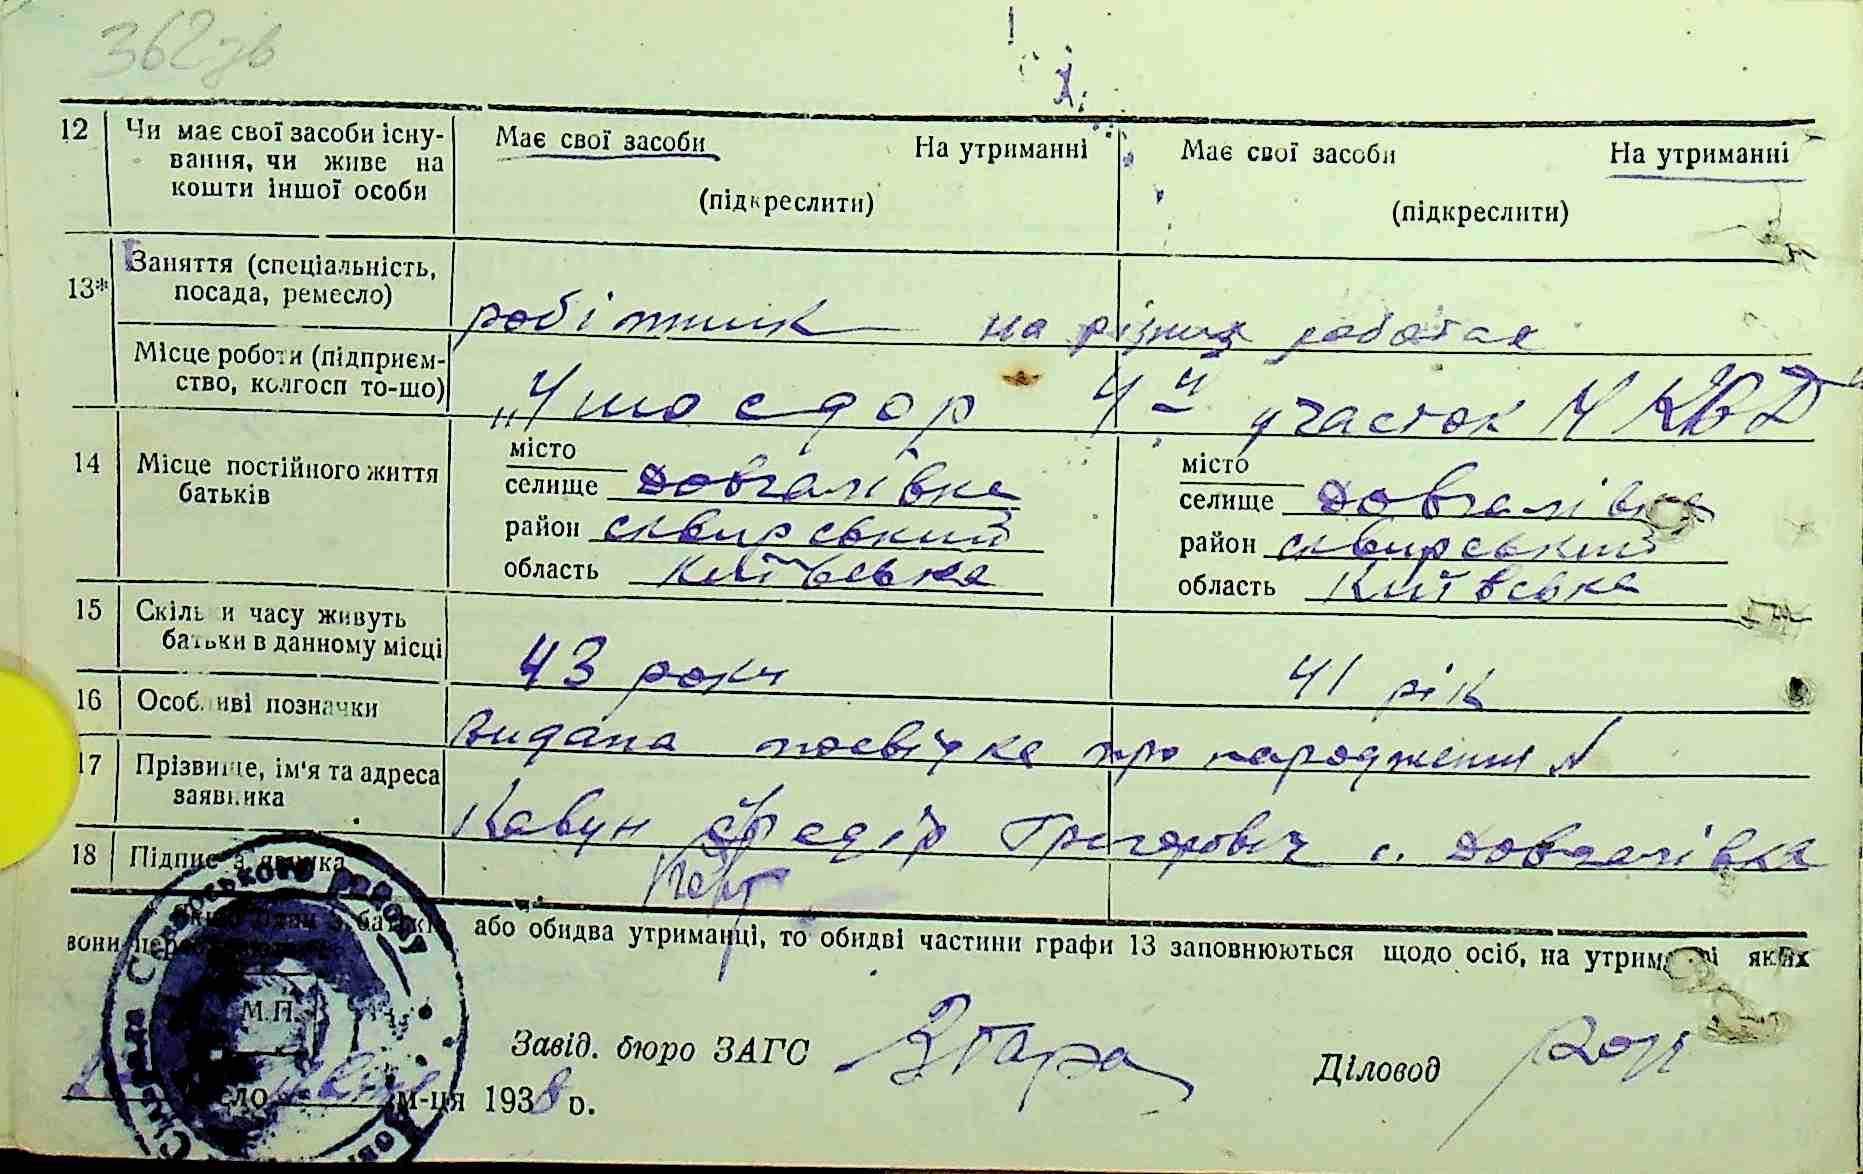 362зв
12 Чи має свої засоби існу-
вання, чи живе на
кошти іншої особи
Має свої засоби На утриманні
(підкреслити)
Має свої засоби На утриманні
(підкреслити)
13* Заняття (спеціальність,
посада, ремесло)
робітник на різних роботах
Місце роботи (підприєм-
ство, колгосп то-що)
"Ушосдор 4й участок НКВД"
14 Місце постійного життя
батьків
місто
селище Довгалівка
район сквирський
область київська
місто
селище Довгалівка
район сквирський
область Київська
15 Скільки часу живуть
батьки в данному місці
43 роки 41 рік
16 Особливі позначки
Видана посвідка про народження N
17 Прізвище, ім'я та адреса
заявника
Кавун Федір Григорович с. Довгалівка
18 Підпис заявника
або обидва утриманці, то обидві частини графи 13 заповнюються щодо осіб, на утриманні яких
вони
М.П.
Завід. бюро ЗАГС
Діловод
число м-ця 1938 р.